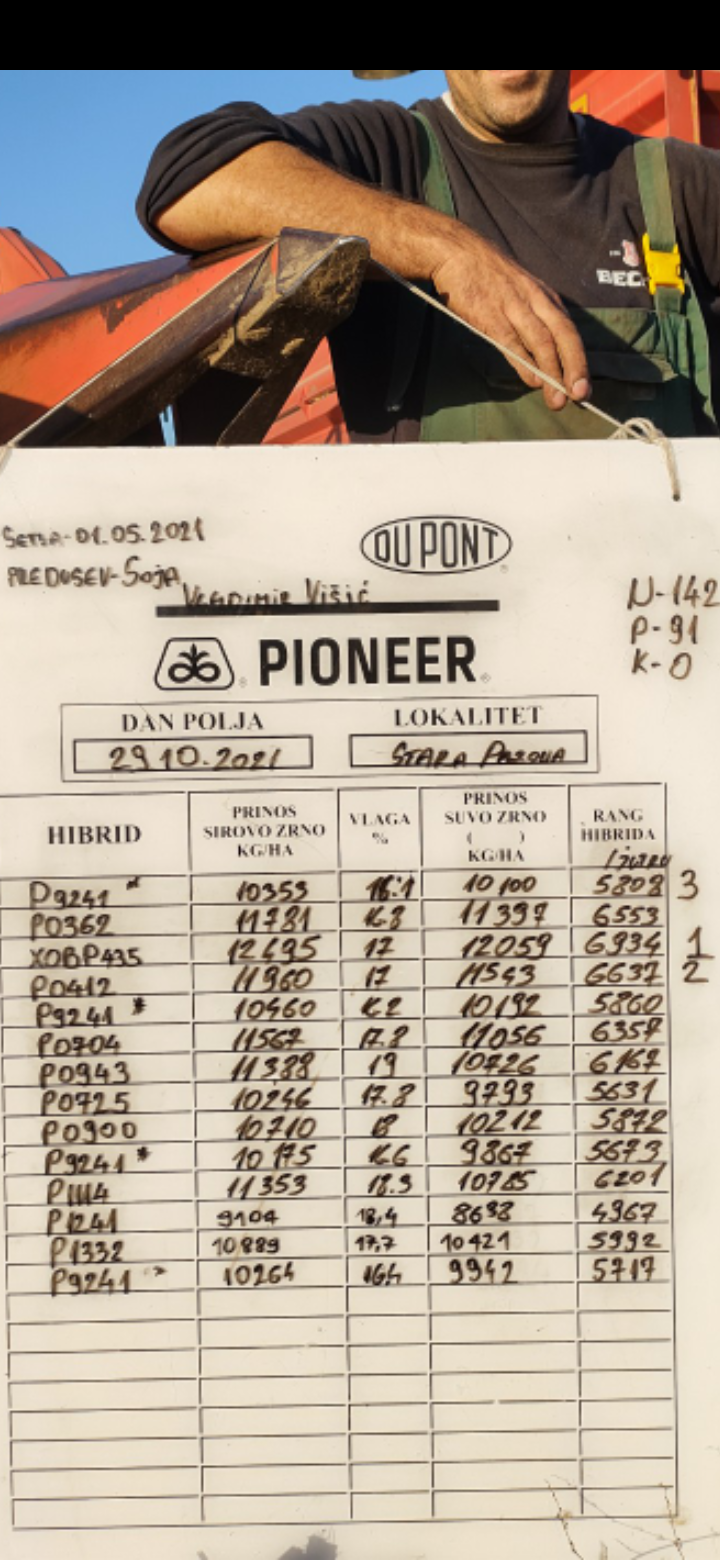 BEC
SETVA-01.05.2021
DU PONT
PREDUSEV-SOJA
VLADIMIR VIŠIĆ
N-142
P-91
K-0
PIONEER
DAN POLJA LOKALITET
29.10.2021 STARA PAZOVA
HIBRID PRINOS SIROVO ZRNO KG/HA VLAGA % PRINOS SUVO ZRNO ( ) KG/HA RANG HIBRIDA
P9241 * 10353 16.1 10100 5808 3
P0362 11781 16.8 11397 6553
XOBP435 12495 17 12059 6934 1
P0412 11960 17 11543 6637 2
P9241 * 10460 16.2 10192 5860
P0704 11567 17.8 11056 6357
P0943 11388 19 10726 6167
P0725 10246 17.8 9793 5631
P0900 10710 18 10212 5872
P9241 * 10175 16.6 9867 5673
P1114 11353 18.3 10785 6201
P1241 9104 18,4 8638 4967
P1332 10889 17,7 10421 5992
P9241 10264 16,7 9942 5717